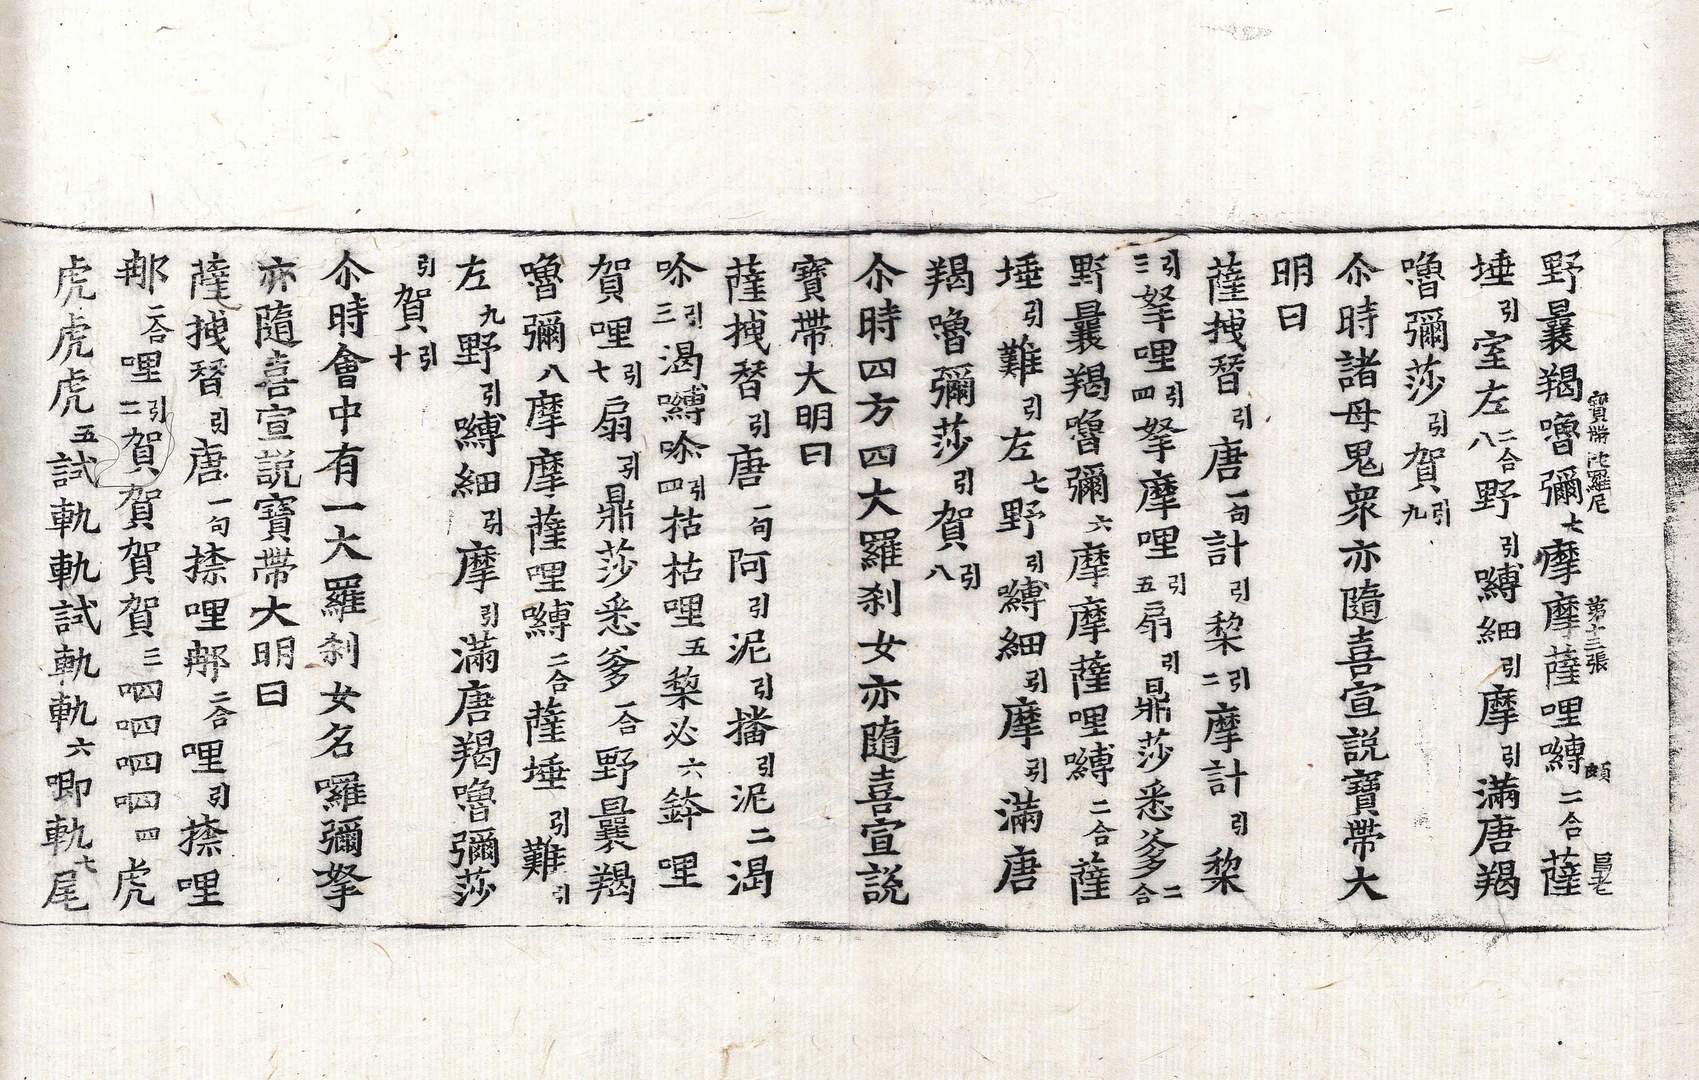 寶帶陁羅尼 第十三張 頗
野曩羯嚕彌七摩摩薩哩嚩二合薩
埵引室左二合八野引嚩細引摩引滿唐羯
嚕彌莎引賀引九
尒時諸母鬼衆亦隨喜宣説寶帶大
明曰
薩拽替引唐一句計引梨引二摩計引梨
引三拏哩引四拏摩哩引五扇引鼎莎悉爹二合
野曩羯嚕彌六摩摩薩哩嚩二合薩
埵引難引左七野引嚩細引摩引滿唐
羯嚕彌莎引賀引八
尒時四方四大羅刹女亦隨喜宣説
寶帶大明曰
薩拽替引唐一句阿引泥引播引泥二渴
唹引三渴嚩唹引四枯枯哩五黎必六鉢哩
賀哩引七扇引鼎莎悉爹二合野曩羯
嚕彌八摩摩薩哩嚩二合薩埵引難引
左九野引嚩細引摩引滿唐羯嚕彌莎
引賀引十
尒時會中有一大羅刹女名囉彌拏
亦隨喜宣説寶帶大明曰
薩拽替引唐一句捺哩那二合哩引捺哩
那二合哩引二賀賀賀賀三呬呬呬呬四虎
虎虎虎五試軌軌試軌軌六唧軌七尾